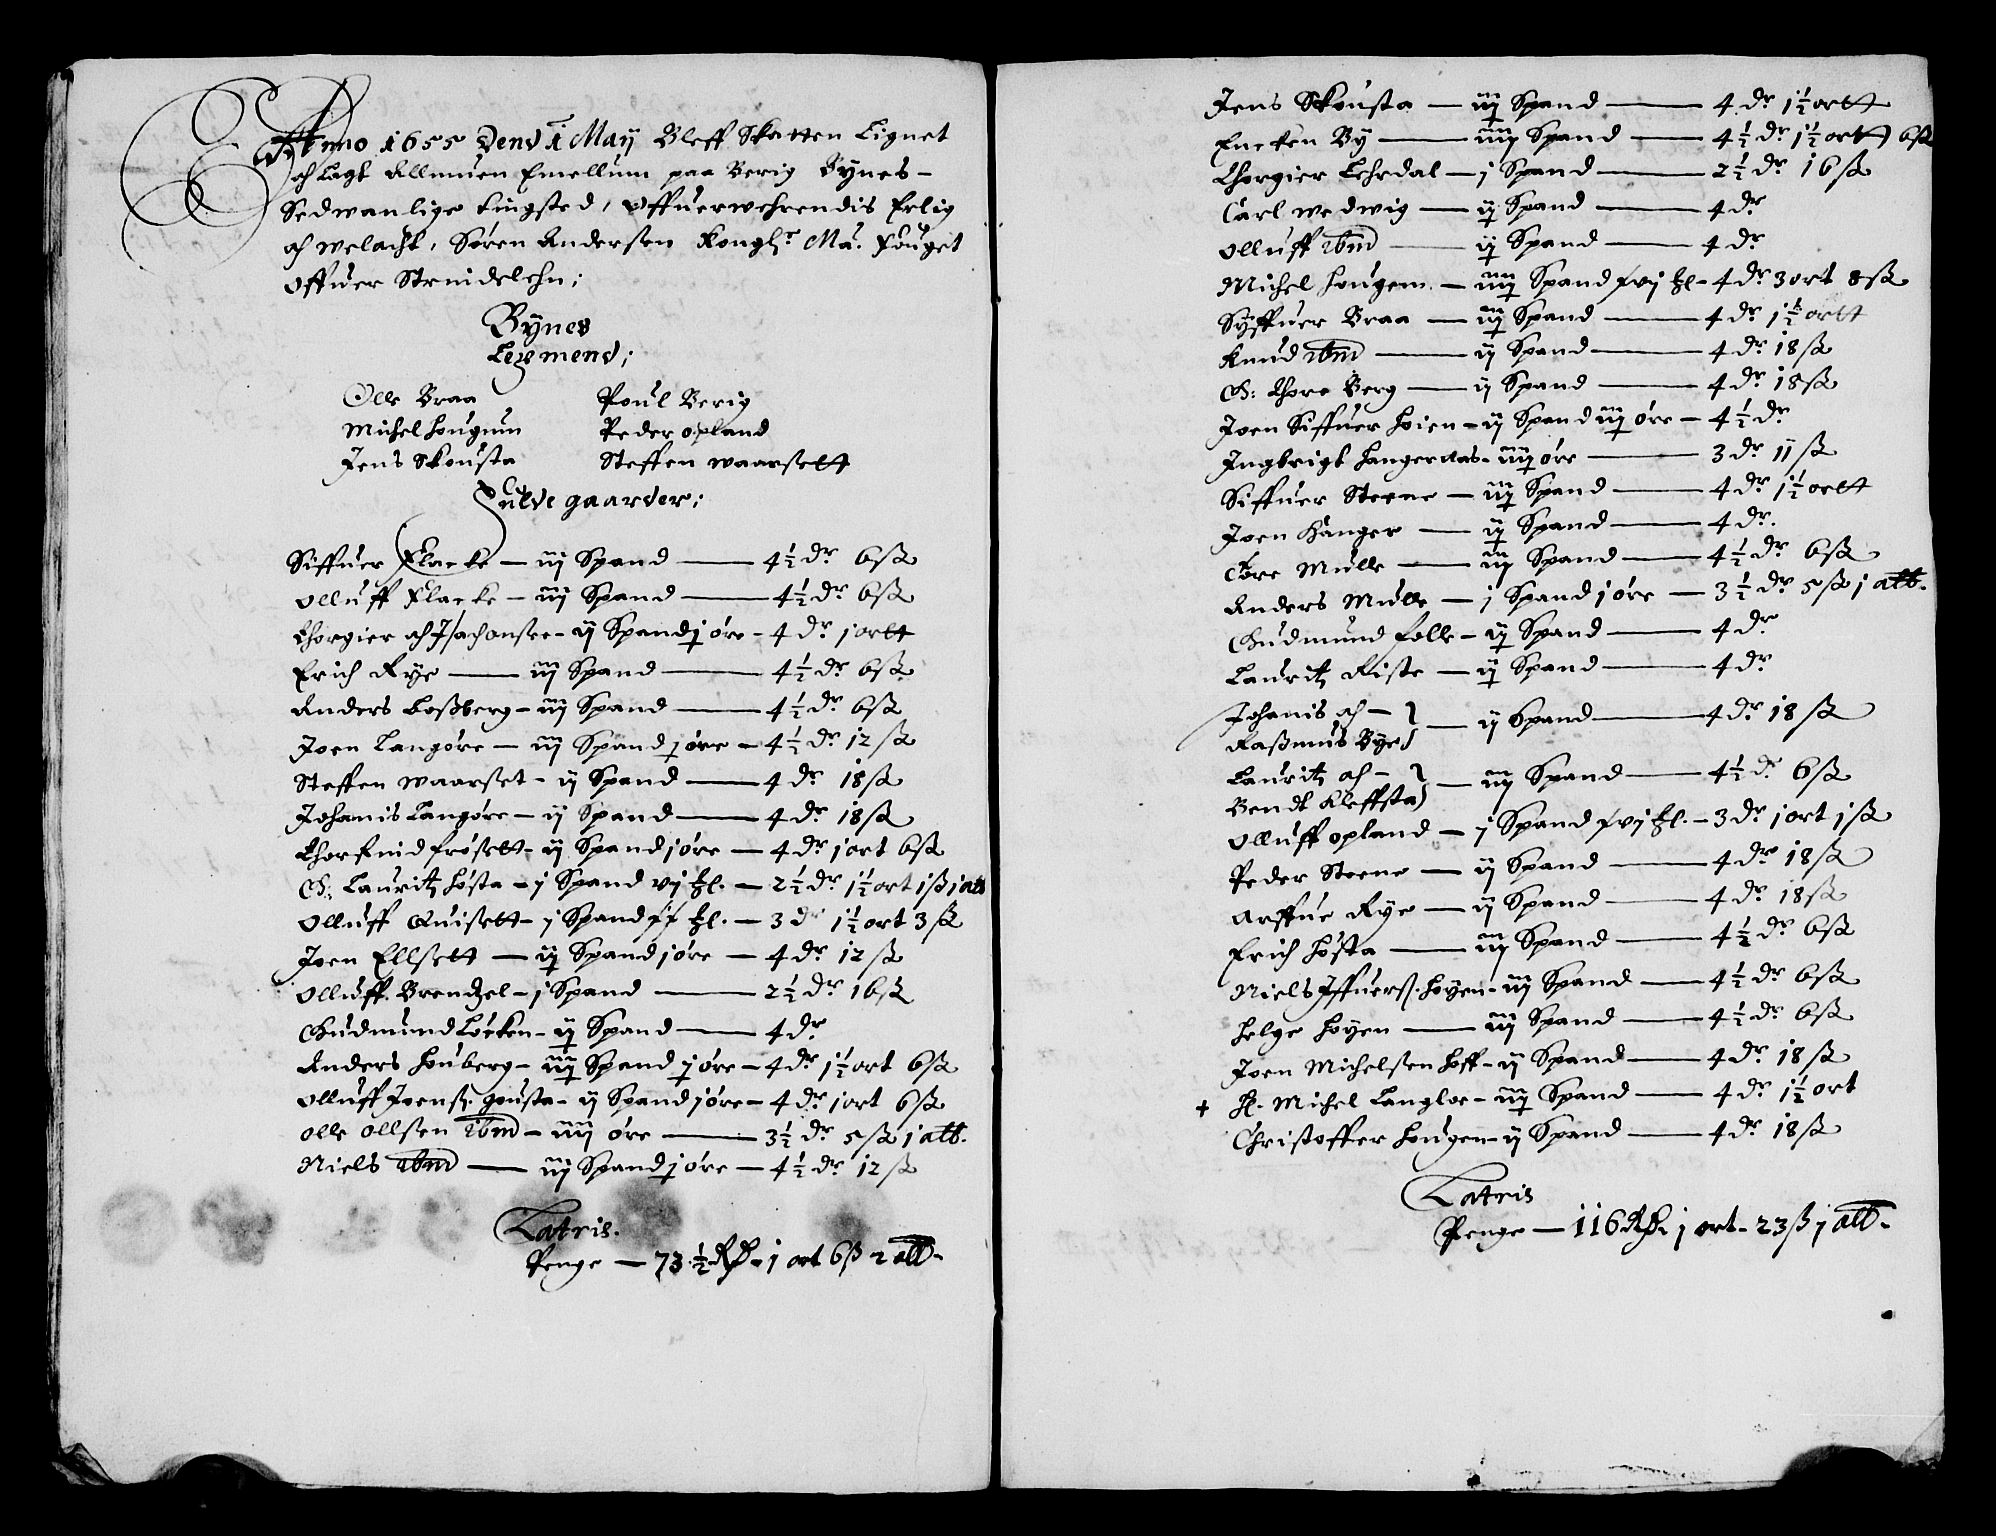 Anno 1655 Dend 1 Maÿ Bleff Skatten Lignet
och Lagt Allmuen Emellum paa Berig Bÿnes-
Sedwanlige tingsted, offuerwehrendis Erlig
och welacht, Sören Andersen Kongl: Ma: fouget
offuer Strindelehn;
Bÿnes
Legmend;
Olle Braa Poul Berig
Michel hougum Peder opland
Jens Skousta Steffen waarßett
Fulde gaarder;
Siffuer Flacke — iij Spand — 4½ dr 6 ß
Olluff Flacke — iij Spand — 4½ dr 6 ß
Thorgier och Isachansee - ij Spand j öre - 4 dr j ortt
Erich Rye — iij Spand — 4½ dr 6 ß
Anders Loßberg - iij Spand — 4½ dr 6 ß
Joen Langöre — iij Spand j öre - 4½ dr 12 ß
Steffen waarset - ij Spand — 4 dr 18 ß
Johanis Langöre — ij Spand — 4 dr 18 ß
Thorfind fröset - ij Spand j öre — 4 dr j ort 6 ß
G: Lauritz hösta - j Spand vj ħl. — 2½ dr 1½ ort j ß j alb
Olluff Quisett - j Spand ħl. — 3 dr 1½ ort 3 ß
Joen Ellsett — ij Spand j öre — 4 dr 12 ß
Olluff Brendzel - j Spand — 2½ dr 16 ß
Gudmund Löcken - ij Spand — 4 dr
Anders houberg - iij Spand j öre - 4 dr 1½ ort 6 ß
Olluff Joenß: gousta - ij Spand j öre - 4 dr j ort 6 ß
Olle Ollsen ibm — iiij öre — 3½ dr 5 ß j alb.
Niels ibm — iij Spand j öre — 4½ dr 12 ß
Latris.
Penge — 73½ Rd - j ort 6 ß 2 alb-
Jens Skousta — iij Spand — 4 dr 1½ ortt
Encken By — iiij Spand — 4½ dr 1½ ortt 6 ß
Thorgier Lehrdal — j Spand — 2½ dr 16 ß
Carl wedwig — ij Spand — 4 dr
Olluff ibm — ij Spand — 4 dr
Michel hougem — iiij Spand vj ħl - 4 dr 3 ort 8 ß
Sÿffuer Braa — iij Spand — 4 dr 1½ ortt
Knud ibm — ij Spand — 4 dr 18 ß
G: Thore Berg — ij Spand — 4 dr 18 ß
Joen Siffuer hoien - ij Spand iij öre — 4½ dr
Ingbrigt hangeraas - iiij öre — 3 dr 11 ß
Siffuer Steene — iij Spand — 4 dr 1½ ortt
Joen Hanger — ij Spand — 4 dr.
Tore Mulle — iij Spand — 4½ dr 6 ß
Anders Mulle — j Spand j öre — 3½ dr 5 ß j alb.
Gudmund folle — ij Spand — 4 dr
Lauritz Riste — ij Spand — 4 dr
Johanis och -
Raßmus Bye — ij Spand — 4 dr 18 ß
Lauritz och -
Bendt Kleffsta — iij Spand — 4½ dr 6 ß
Olluff opland — j Spand vj ħl. — 3 dr j ort j ß
Peder Steene — ij Spand — 4 dr 18 ß
Arffue Rye — ij Spand — 4 dr 18 ß
Erich hösta — iij Spand — 4½ dr 6 ß
Niels Iffuerß: hoyen - iij Spand — 4½ dr 6 ß
Helge hoyen — iij Spand — 4½ dr 6 ß
Joen Michelsen hoff - ij Spand — 4 dr 18 ß
+ H. Michel Langloe - iij Spand — 4 dr 1½ ort
Christoffer hougen - ij Spand — 4 dr 18 ß
Latris
Penge — 116 Rd j ort - 23 ß j alb-